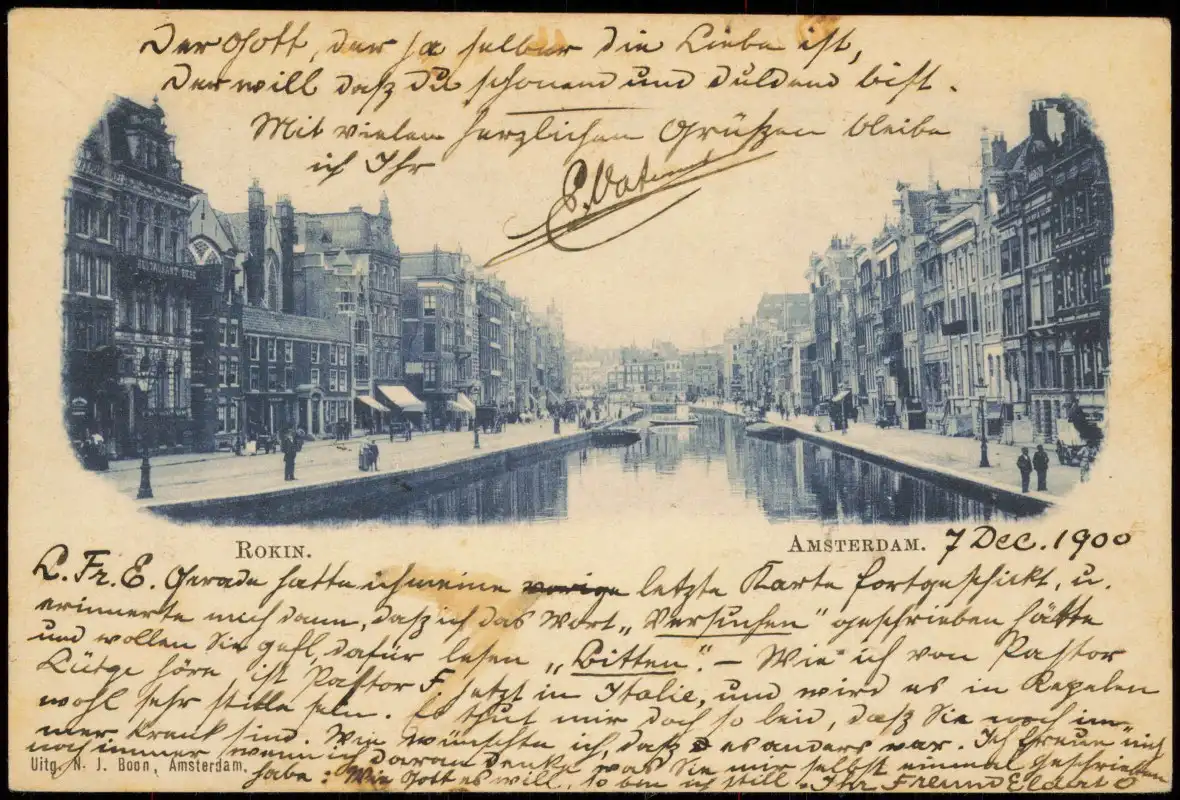 Der Gott, der ja selber die Liebe ist,
Der will daß Du schonend und duldend bist.
Mit vielen herzlichen Grüßen bleibe
ich Ihr
RESTAURANT
ROKIN.
AMSTERDAM. 7 Dec. 1900
L. Fr. E. Gerade hatte ich meine vorige letzte Karte fortgeschickt, u.
erinnerte mich dann, daß ich das Wort „Versuchen" geschrieben hätte
und wollen Sie gefl. dafür lesen „Bitten". – Wie ich von Pastor
Lütge höre, ist Pastor F. jetzt in Italie, und wird es in Repelen
wohl sehr stille sein. Es thut mir doch so leid, daß Sie noch im-
mer krank sind. Wie wünschte ich, daß es anders war. Ich freue mich
noch immer wenn ich daran denke was Sie mir selbst einmal geschrieben
habe: Wie Gott es will, so bin ich still. Ihr Freund
Uitg. N. J. Boon, Amsterdam.